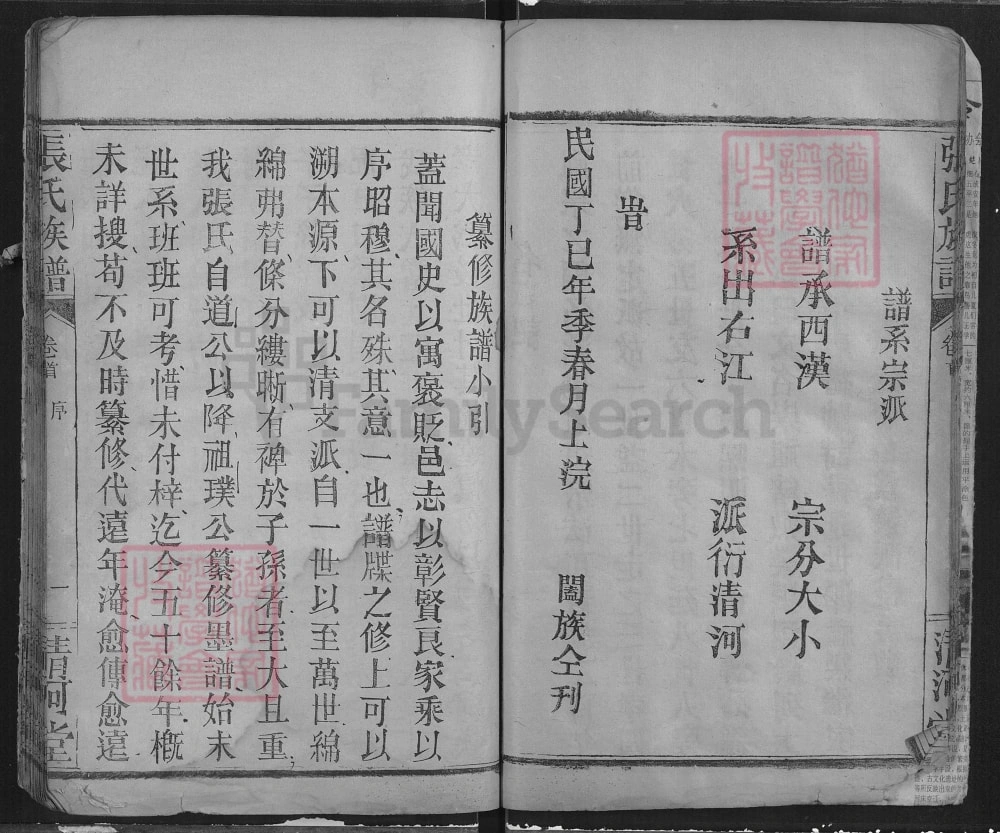 譜系宗派
譜承西漢 宗分大小
系出右江 派衍清河
旹
民國丁巳年季春月上浣 闔族仝刋
張氏族譜 卷首 清河堂
纂修族譜小引
蓋聞國史以寓褒貶邑志以彰賢良家乘以
序昭穆其名殊其意一也譜牒之修上可以
溯本源下可以清支派自一世以至萬世綿
綿弗替條分縷晰有裨於子孫者至大且重
我張氏自道公以降祖璞公纂修墨譜始末
世系班班可考惜未付梓迄今五十餘年概
未詳搜苟不及時纂修代遠年淹愈傳愈遠
張氏族譜 卷首 序 一 清河堂
FamilySearch